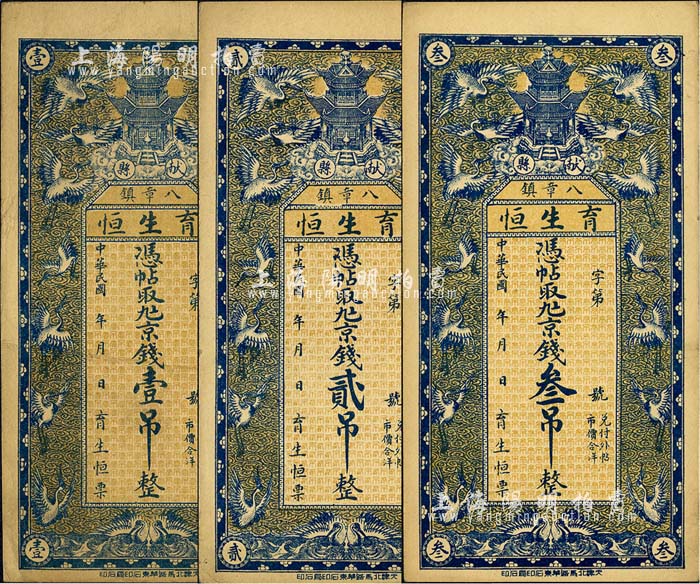 壹
上海陽明拍賣
www.yangmingauction.com
獻縣
八章鎮
育生恒
字第
號
市價合洋
憑帖取九京錢壹吊整
中華民國 年 月 日 育生恒票
壹
天津北馬路華東石印局石印
貳
獻縣
八章鎮
育生恒
字第
號
兌付外帖
市價合洋
憑帖取九京錢貳吊整
中華民國 年 月 日 育生恒票
貳
天津北馬路華東石印局石印
上海陽明拍賣
www.yangmingauction.com
叁
叁
獻縣
八章鎮
育生恒
字第
號
兌付外帖
市價合洋
憑帖取九京錢叁吊整
中華民國 年 月 日 育生恒票
叁
叁
天津北馬路華東石印局石印
上海陽明拍賣
www.yangmingauction.com